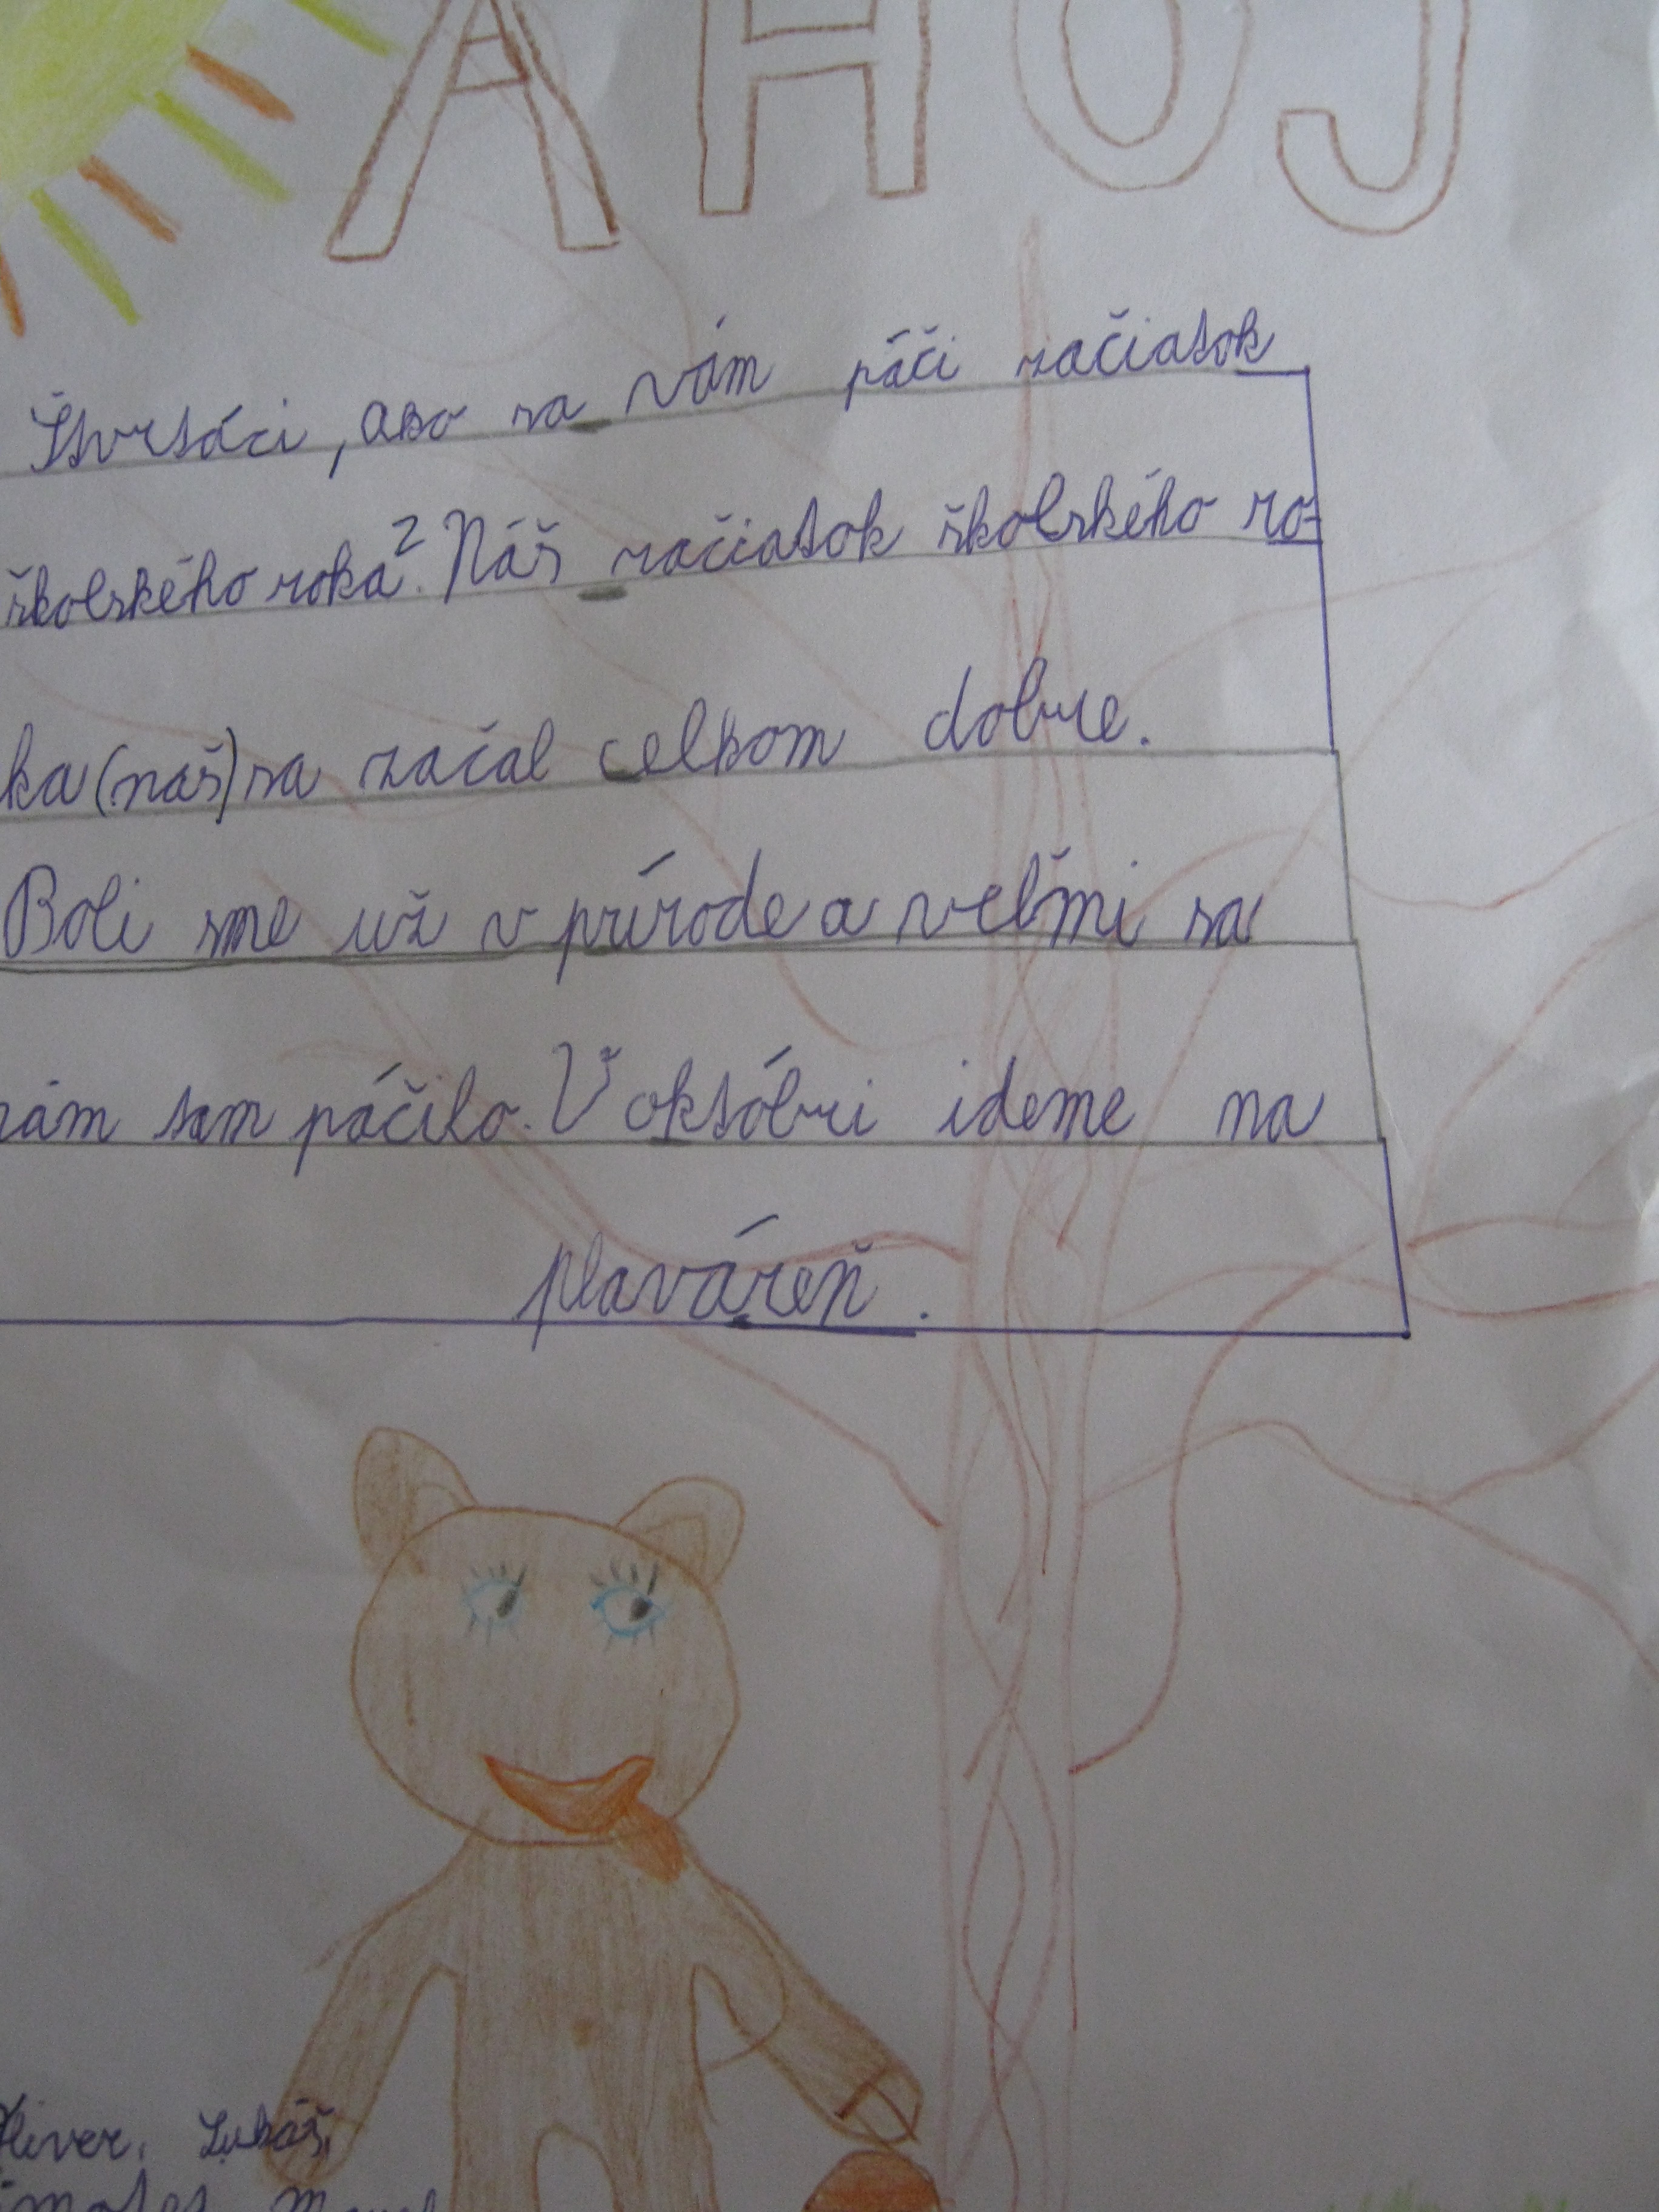 AHOJ
Štvrtáci, ako sa vám páči začiatok
školského roka? Náš začiatok školského ro-
ka (náš) sa začal celkom dobre.
Boli sme už v prírode a veľmi sa
nám tam páčilo. V októbri ideme na
plaváreň.
Oliver, Lukáš,